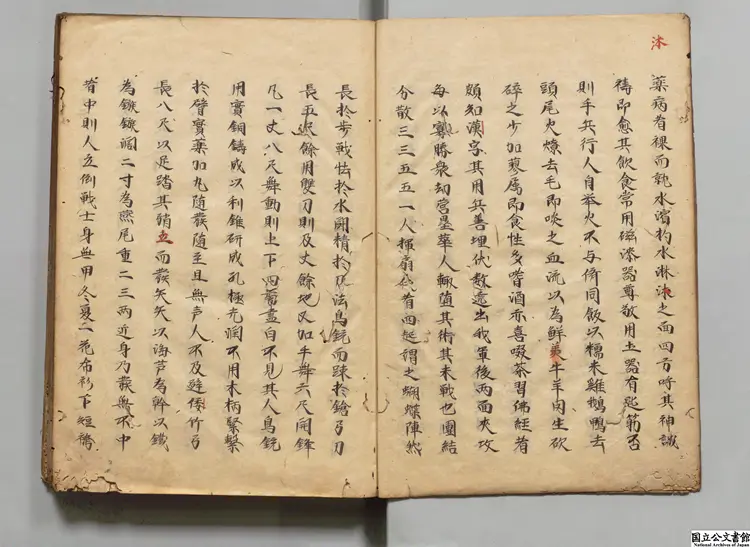 沐
藥病者裸而就水濱杓水淋沐之面四方呼其神誠
禱即愈其飲食常用磁漆器尊敬用土器有匙筯否
則手兵行人自举火不与俻同飯以糯米雞鵝鴨去
頭尾火燎去毛即啖之血流以為鮮羙牛羊肉生砍
碎之少加蓼屬即食性多嗜酒亦喜啜茶習佛經者
頗知漢字其用兵善埋伏数遶出我軍後両面夾攻
每以寡勝衆刼营壘華人輙墮其術其来戰也團結
分散三三五五一人揮扇众皆四起謂之蝴蝶陣然
長於步戰怯於水闘精於刀法鳥銃而踈於鎗弓刀
長五尺餘用雙刀則及丈餘地又加手舞六尺開鋒
凡一丈八尺舞動則上下四旁盡白不見其人鳥銃
用實銅鑄成以利錐研成孔極光润不用木柄緊槼
於臂實藥加丸随發随至且無声人不及避倭竹弓
長八尺以足踏其弰立而發矢矢以海芦為幹以鐵
為鏃鏃濶二寸為燕尾重二三两近身乃發無不中
者中則人立倒戰士身無甲冬夏一花布衫下短裤
国立公文書館
National Archives of Japan